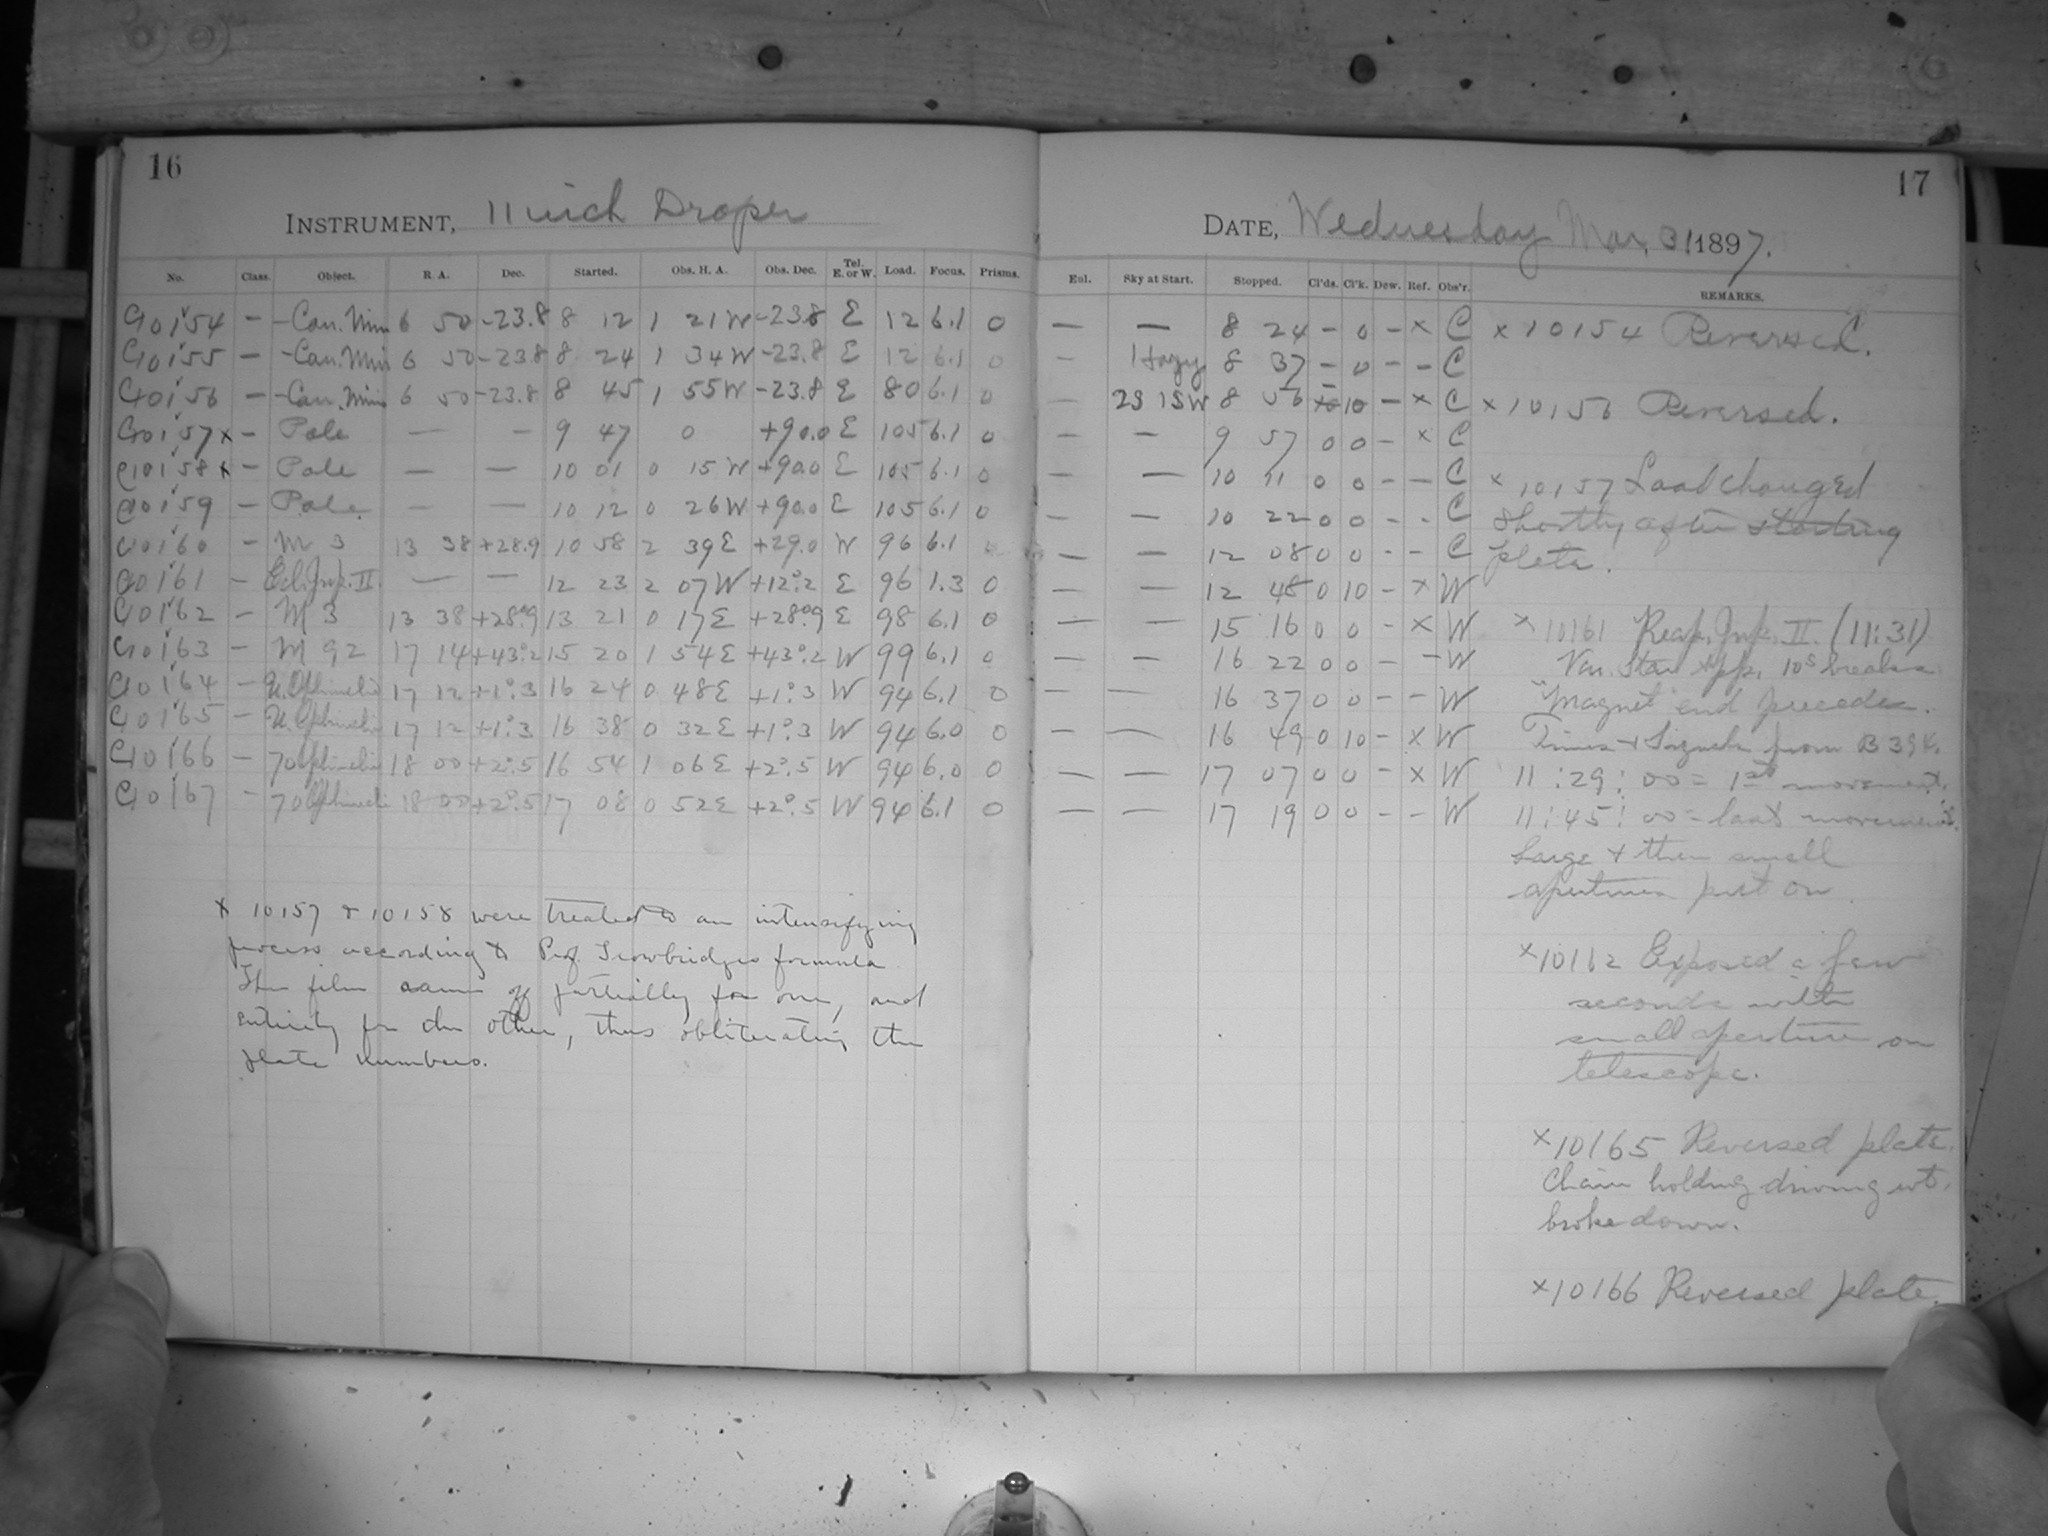 16
INSTRUMENT, 11 inch Draper
No. Class. Object. R. A. Dec. Started. Obs. H. A. Obs. Dec. Tel. E. or W. Load. Focus. Prisms.
C10154 - -Can. Min 6 50 -23.8 8 12 1 21 W -23.8 E 12 6.1 0
C10155 - -Can. Min 6 50 -23.8 8 24 1 34 W -23.8 E 12 6.1 0
C10156 - -Can. Min 6 50 -23.8 8 45 1 55 W -23.8 E 80 6.1 0
C10157 x - Pole — — 9 47 0 +90.0 E 105 6.1 0
C10158 x - Pole — — 10 01 0 15 W +90.0 E 105 6.1 0
C10159 - Pole — — 10 12 0 26 W +90.0 E 105 6.1 0
C10160 - M 3 13 38 +28.9 10 58 2 39 E +29.0 W 96 6.1
C10161 - Ecl. Jup. II. — — 12 23 2 07 W +12°.2 E 96 1.3 0
C10162 - M 3 13 38 +28°.9 13 21 0 17 E +28°.9 E 98 6.1 0
C10163 - M 92 17 14 +43°.2 15 20 1 54 E +43°.2 W 99 6.1 0
C10164 - U. Ophiuchi 17 12 +1°.3 16 24 0 48 E +1°.3 W 94 6.1 0
C10165 - U. Ophiuchi 17 12 +1°.3 16 38 0 32 E +1°.3 W 94 6.0 0
C10166 - 70 Ophiuchi 18 00 +2°.5 16 54 1 06 E +2°.5 W 94 6.0 0
C10167 - 70 Ophiuchi 18 00 +2°.5 17 08 0 52 E +2°.5 W 94 6.1 0
x 10157 & 10158 were treated to an intensifying
process according to Prof. Trowbridges formula
The film came off partially for one, and
entirely for the other, thus obliterating the
plate numbers.
17
DATE, Wednesday Mar, 31 1897.
Enl. Sky at Start. Stopped. Cl'ds. Cl'k. Dew. Ref. Obs'r. REMARKS.
— — 8 24 - 0 - x C x 10154 Reversed.
- Hazy 8 37 - 0 - - C
- 2S 15W 8 56 10 - x C x 10156 Reversed.
— — 9 57 0 0 - x C
— — 10 11 0 0 - - C x 10157 Load changed
— — 10 22 0 0 - - C shortly after starting
— — 12 08 0 0 - - C plate.
— — 12 48 0 10 - x W
— — 15 16 0 0 - x W x 10161 Reap. Jup. II. (11:31)
— — 16 22 0 0 - - W Var. Star App. 10s breaks
— — 16 37 0 0 - - W "Magnet" end precedes.
— — 16 49 0 10 - x W Times & Signals from
— — 17 07 0 0 - x W 11:29:00 = 1st movement.
— — 17 19 0 0 - - W 11:45:00 = last movement.
Large & then small
apertures put on
x 10162 Exposed a few
seconds with
small aperture on
telescope.
x 10165 Reversed plate.
Chain holding driving wt.
broke down.
x 10166 Reversed plate.